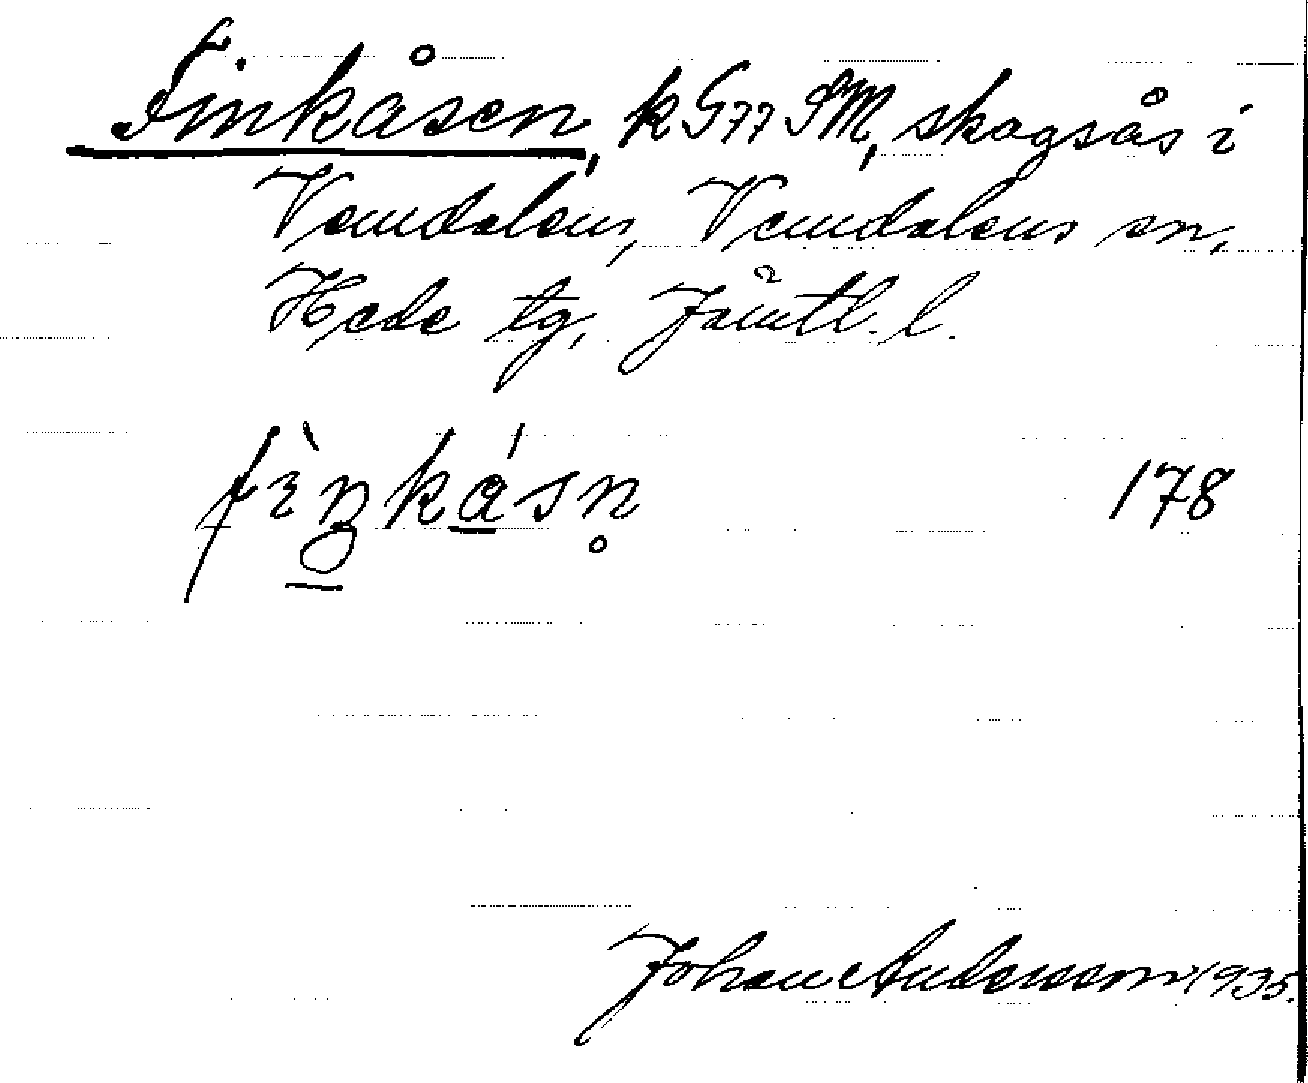 Finkåsen, k G77 SM, skogsås i
Vemdalens, Vemdalens sn,
Hede tg, Jämtl. l.
178
Johan Andersson 1935.